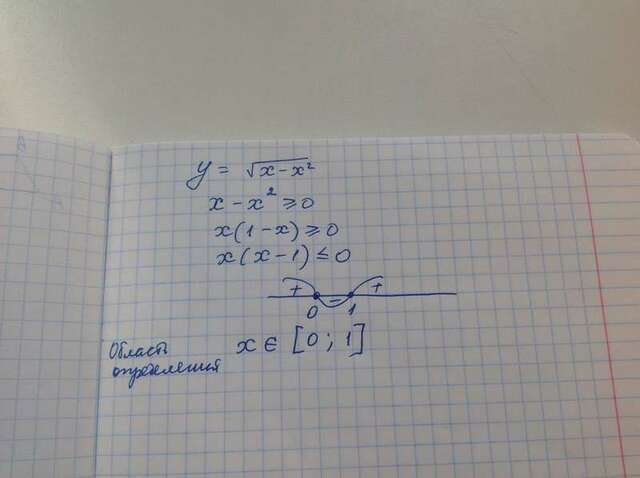 y = √x-x²
x - x² ≥ 0
x(1-x) ≥ 0
x(x-1) ≤ 0
+ - +
0 1
Область определения x ∈ [0; 1]